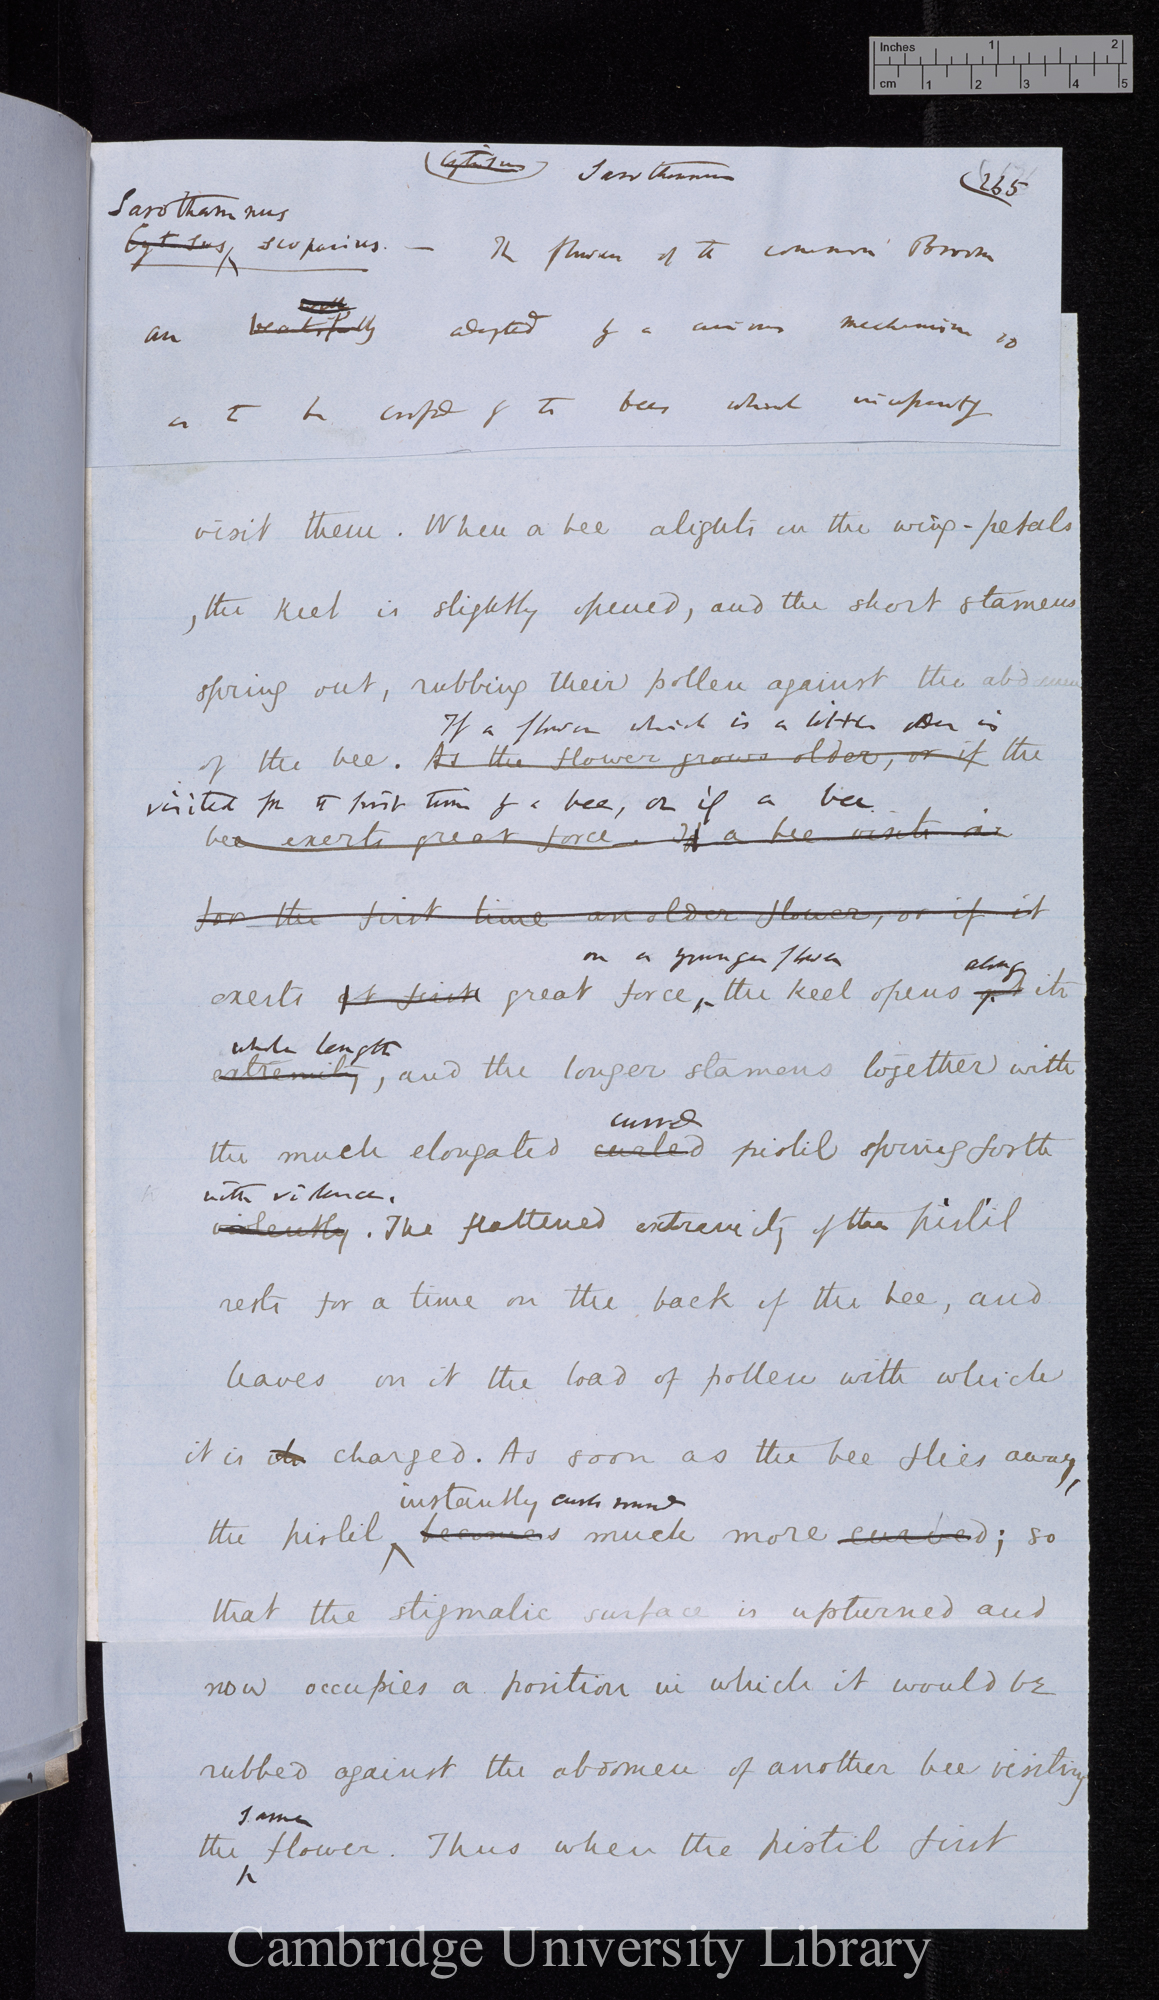 Inches 1 2
cm 1 2 3 4 5
(Cytisus) Sarothamnus
265
Sarothamnus
Cytisus scoparius. — The flowers of the common Broom
are beautifully adapted by a curious mechanism so
as to be crossed by the bees which incessantly
visit them. When a bee alights on the wing-petals
, the keel is slightly opened, and the short stamens
spring out, rubbing their pollen against the abdomen
If a flower which is a little older is
of the bee. As the flower grows older, or if the
visited for the first time by a bee, or if a bee
bee exerts great force. If a bee visits
for the first time an older flower, or if it
on a younger flower
along
exerts at first great force, the keel opens at its
whole length
extremity, and the longer stamens together with
curved
the much elongated curled pistil spring forth
with violence.
violently. The flattened extremity of the pistil
rests for a time on the back of the bee, and
leaves on it the load of pollen with which
it is charged. As soon as the bee flies away,
instantly curls round
the pistil becomes much more curved; so
that the stigmatic surface is upturned and
now occupies a position in which it would be
rubbed against the abdomen of another bee visiting
same
the flower. Thus when the pistil first
Cambridge University Library